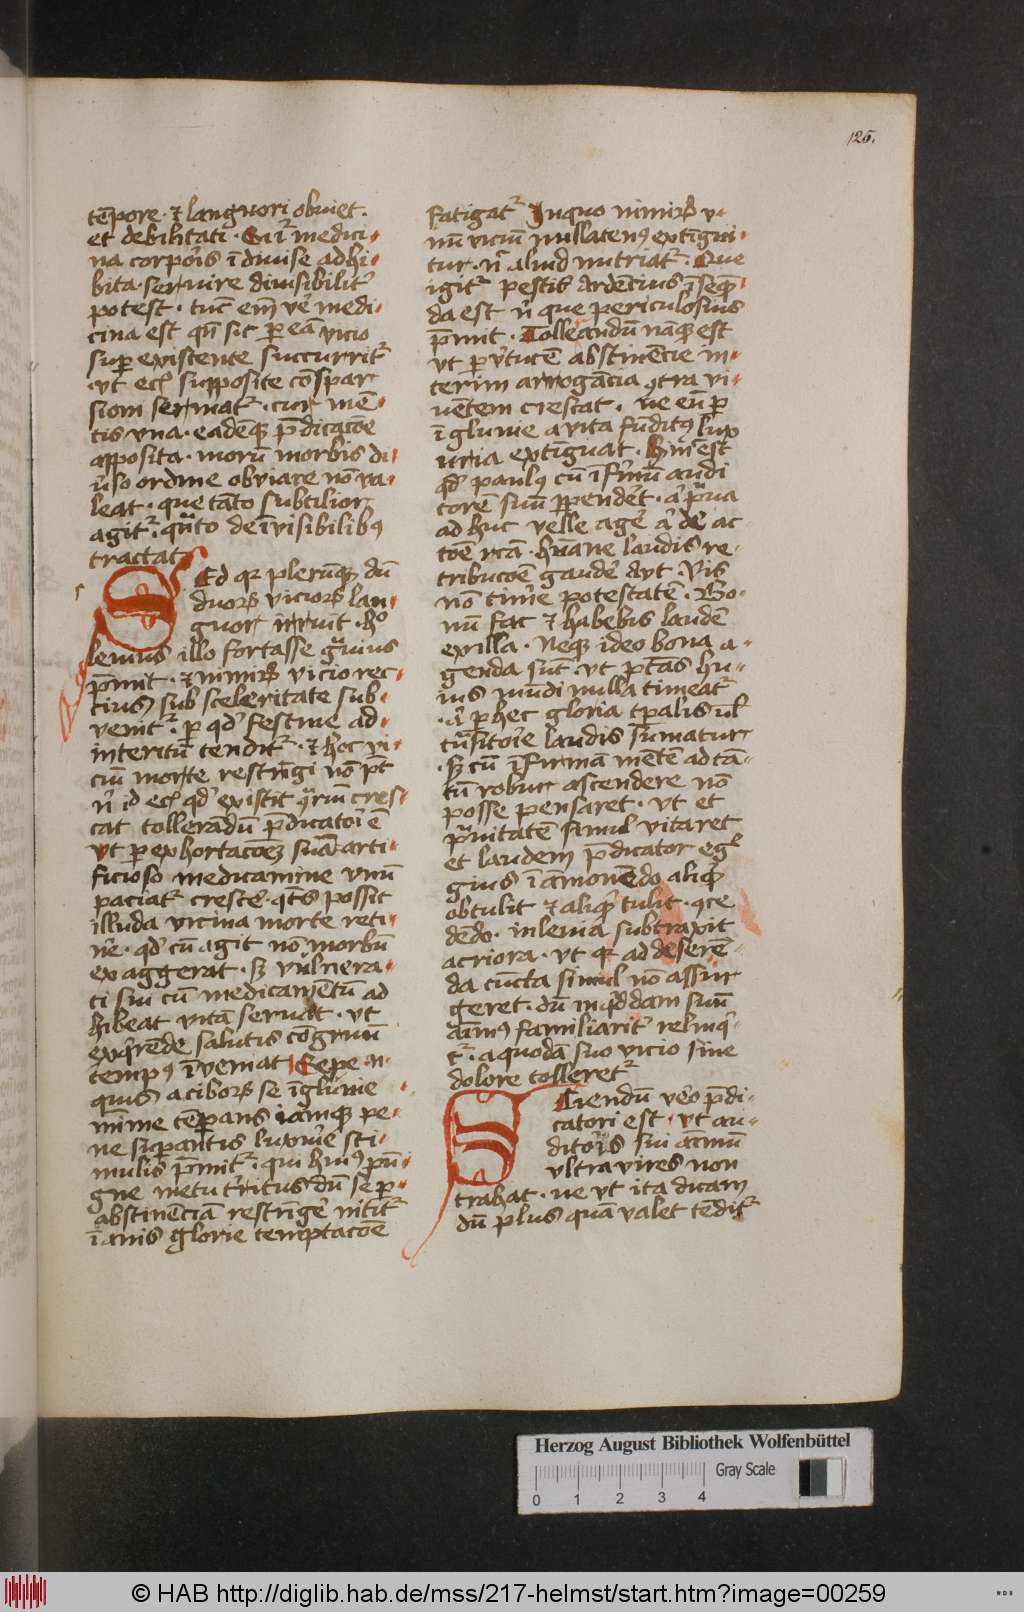 125.
tēpore · ⁊ languori obuiet
et debilitati · Si gͥ medici
na corporis īdiuise adhi
bita seruire diuisibiliť
potest · tūc em̄ ve᷒ medi
cina est qn̄ sic per eā vicio
super existente succurritur
vt eciā supposite cōspar
sioni seruiatur · cur mē
tis vna · eadēque predicacōe
apposita · morū morbis di
uerso ordine obuiare nō va
leat · que tāto subtilior
agitur · quāto de īvisibilibus
tractat
Sed quia plerūque dū
duorum viciorum lan
guor irruit · hoc
leuius illo fortasse grauius
premit · ⁊ nimirum vicio rec
tius sub sceleritate sub
venitur · per quod festine ad
interitū tenditur · ⁊ hoc vi
ciū morte restringi nō potest
nisi id eciā quod existit contrariū cres
cat tollerādū predicatori ē
vt per exhortacōem suā arti
ficioso medicamine vnū
paciatur crescere · quatenus possit
illud a vicina morte reti
nere · quod cū agit nō morbū
exaggerat · sed vulnera
ti sui cū medicamentū ad
hibeat vitā seruat · vt
exquirēde salutis congruū
tempus īveniat Sepe enim
quis a ciborum se īgluuie
mīme tēperans iamque pe
ne superantis luxurie sti
mulis premitur · qui huius pu
gne metu territus dū se per
abstinēciā restringere nititur
īanis glorie temptacōe
fatigatur In quo nimirum v
nū viciū nullatenus extīgui
tur · nisi aliud nutriatur · Que
igitur pestis ardētius īseque
da est nisi que periculosius
premit · Tollerandū namque est
vt per virtutē abstinēcie in
terim arrogācia contra vi
uētem crescat · ne eū per
īgluuie a vita fūditus lux
uria extīguat · Hinc est
quod paulus cū īfirmū audi
torē suū perpendēt · aut praua
ad huc velle agere aut de ac
cōe recta · hūane laudis re
tribucōe gaudere ayt · Vis
nō timere potestatē · Bo
nū fac ⁊ habebis laudē
ex illa · Neque ideo bona a
genda sūt · vt potestas hu
ius mūdi nulla timeatur
aut per hec gloria temporalis vel
trāsitorie laudis sumatur
sed cū īfirmā mētē ad tā
tū robur ascendere nō
posse pensaret · vt et
prauitatē simul vitaret
et laudem predicator egre
gius ī amonēdo aliquid
obtulit ⁊ aliquid tulit · conce
dēdo · in lenia subtraxit
acriora · vt quia ad deserē
da cūcta simul nō assur
geret · dū in quoddam suū
animus familiariter relinqui
tur · a quodā suo vicio sine
dolore tolleretur
Sciendū vero predi
catori est · vt au
ditoris sui animū
vltra vires non
trahat · ne vt ita dicam
dū plus quā valet tēditur
Herzog August Bibliothek Wolfenbüttel
Gray Scale
0 1 2 3 4
© HAB http://diglib.hab.de/mss/217-helmst/start.htm?image=00259